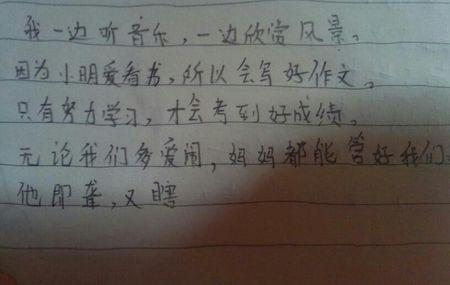 我一边听音乐，一边欣赏风景。
因为小明爱看书，所以会写好作文。
只有努力学习，才会考到好成绩。
无论我们多爱闹，妈妈都能管好我们。
他即聋，又瞎